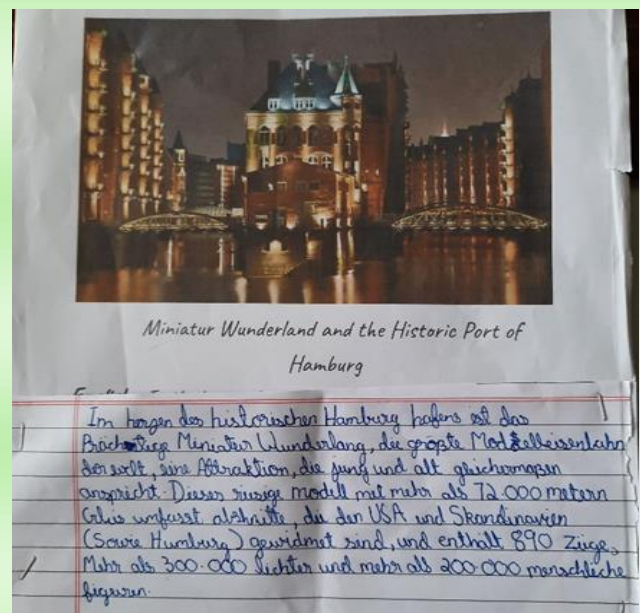 Miniatur Wunderland and the Historic Port of
Hamburg
Im herzen des historischen Hamburg hafens ist das
Prächtige Miniatur Wunderlang, die größte Modelleisenbahn
der welt, eine Attraktion, die jung und alt gleichermaßen
anspricht. Dieses riesige modell mit mehr als 72.000 metern
Gleis umfasst abshnitte, die den USA und Skandinavien
(Sowie Humburg) gewidmet sind, und enthalt 890 Züge,
Mehr als 300.000 lichter und mehr als 200.000 menschliche
figuren.